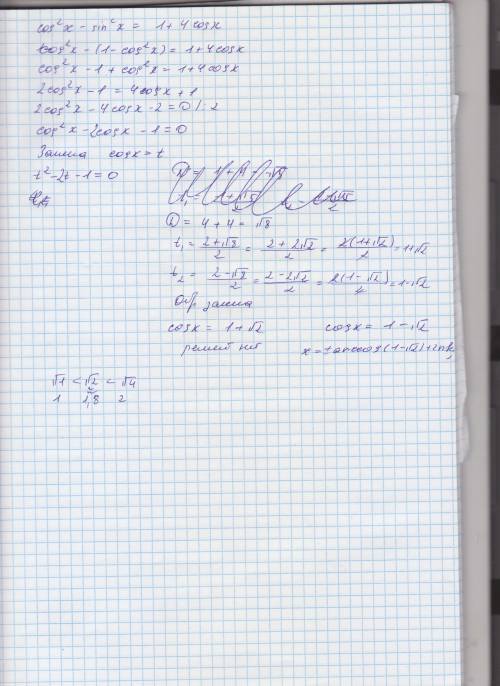 cos²x - sin²x = 1 + 4cosx
cos²x - (1 - cos²x) = 1 + 4cosx
cos²x - 1 + cos²x = 1 + 4cosx
2cos²x - 1 = 4cosx + 1
2cos²x - 4cosx - 2 = 0 /:2
cos²x - 2cosx - 1 = 0
Замена cosx = t
t² - 2t - 1 = 0
D = 4 + 4 = √8
t₁ = 2+√8/2 = 2+2√2/2 = 2(1+√2)/2 = 1+√2
t₂ = 2-√8/2 = 2-2√2/2 = 2(1-√2)/2 = 1-√2
Обр. замена
cosx = 1 + √2 cosx = 1 - √2
решен нет x = ±arccos(1-√2)+2πk,
√1 < √2 < √4
1 1,8 2